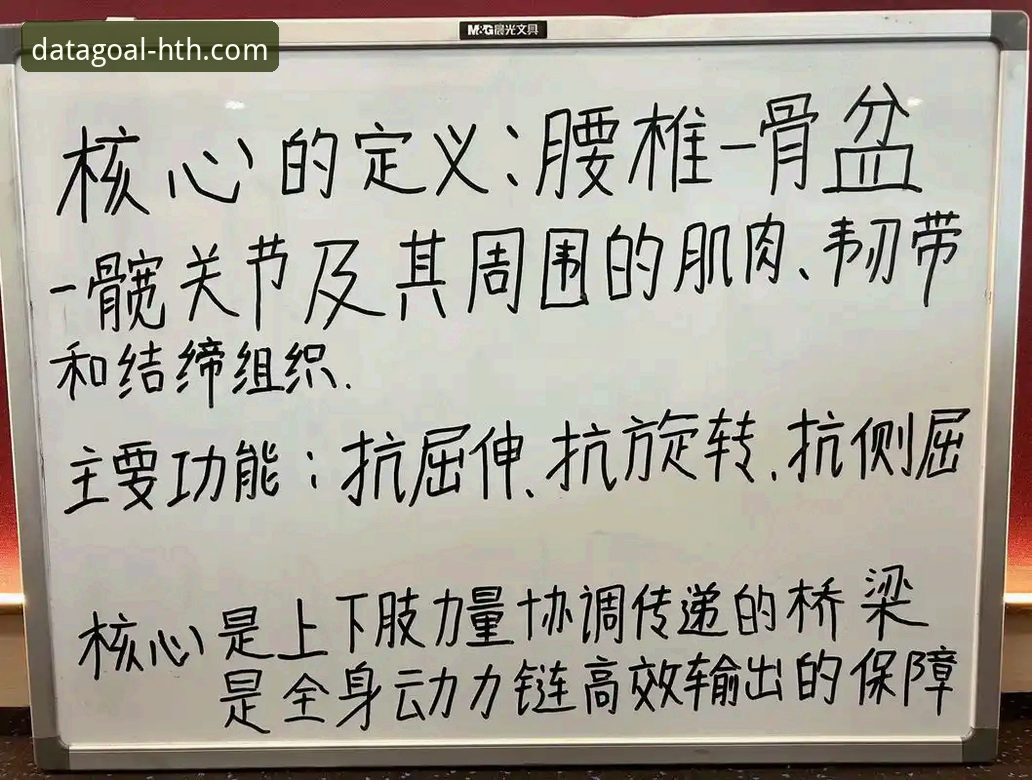 datagoal-hth.com
M&G晨光文具
核心的定义:腰椎-骨盆
-髋关节及其周围的肌肉、韧带
和结缔组织.
主要功能:抗屈伸、抗旋转、抗侧屈
核心是上下肢力量协调传递的桥梁
是全身动力链高效输出的保障